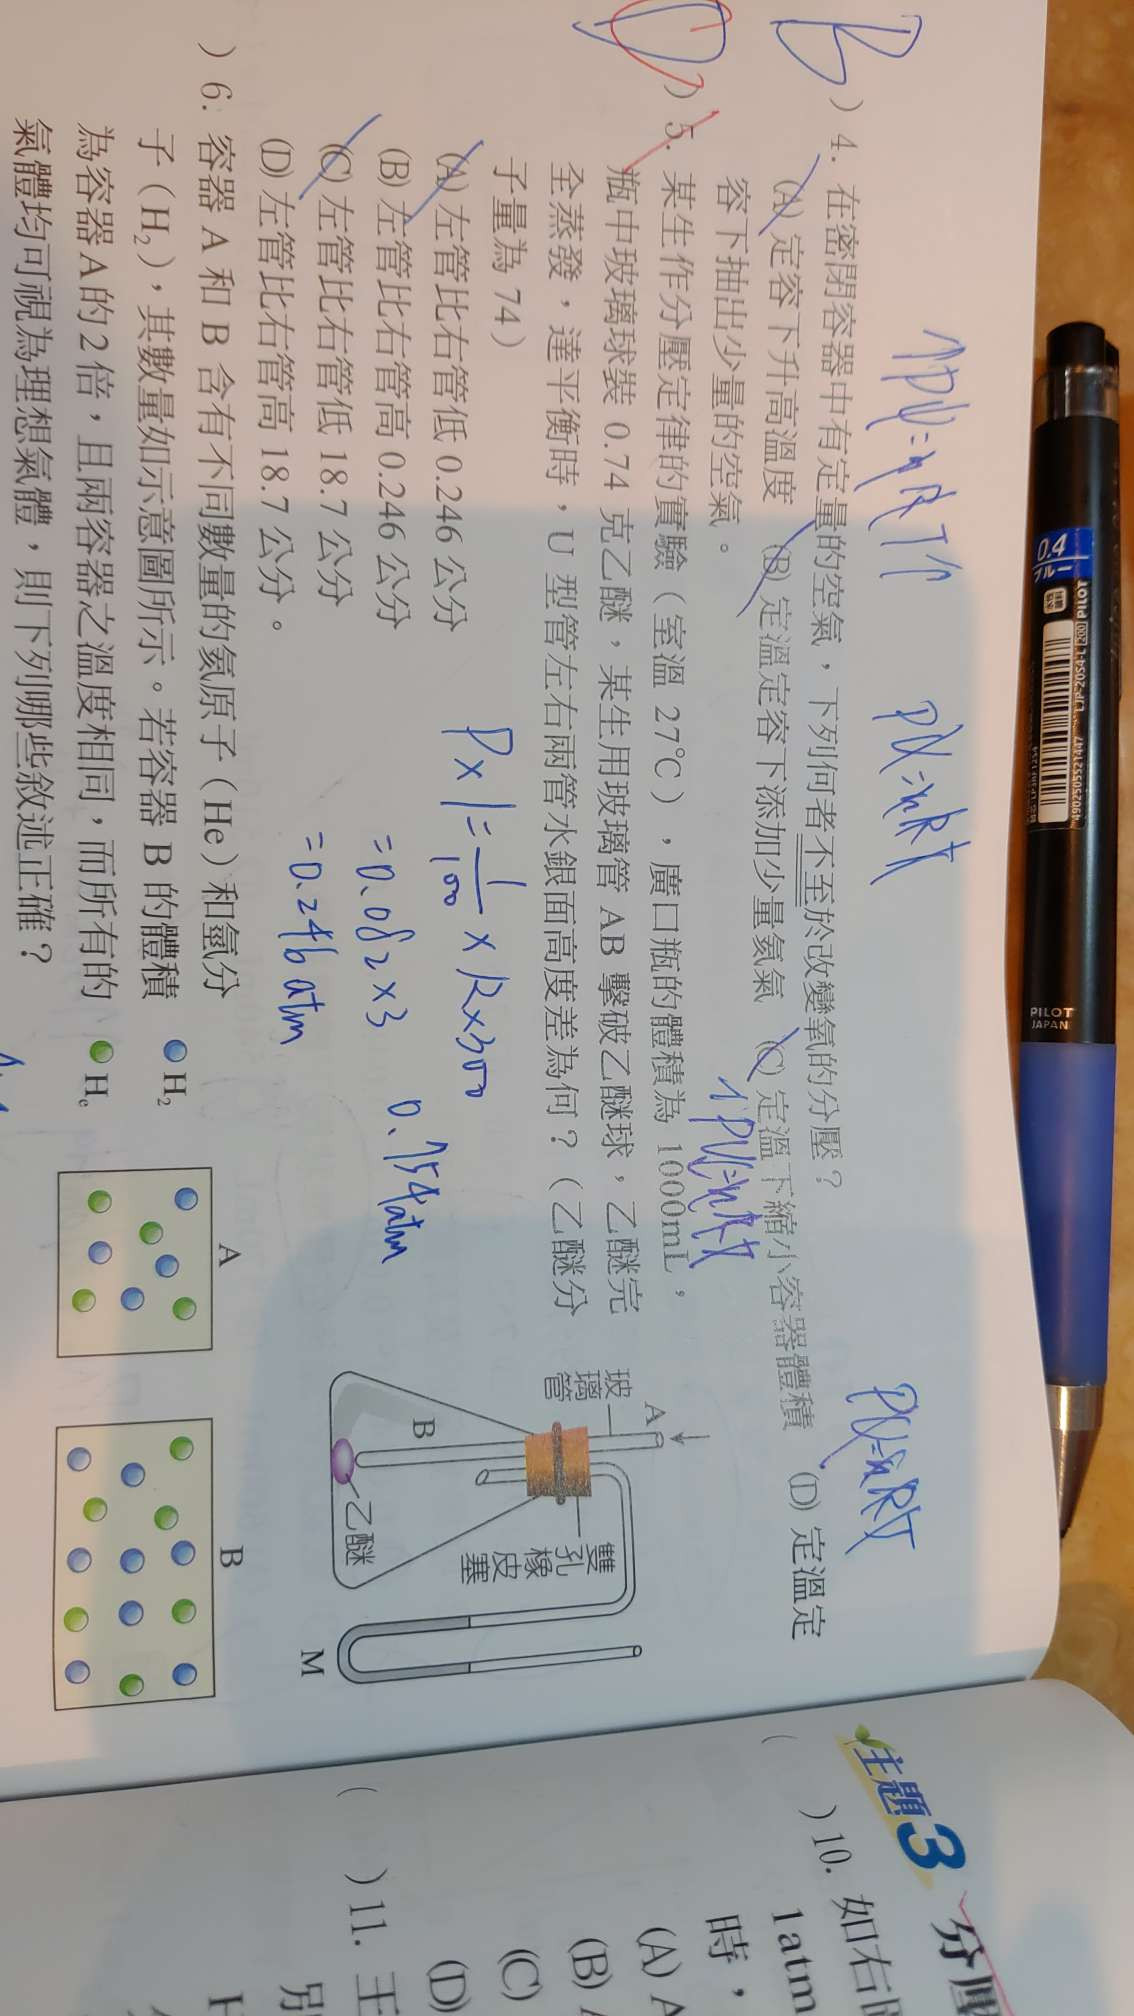 B
)4. 在密閉容器中有定量的空氣，下列何者不至於改變氧的分壓？
(A)定容下升高溫度 (B)定溫定容下添加少量氦氣 (C)定溫下縮小容器體積 (D)定溫定
容下抽出少量的空氣。
↑PV=nRT↑
PV=nRT
↑PV=nRT
PV=nRT
)5. 某生作分壓定律的實驗（室溫 27℃），廣口瓶的體積為 1000mL，
瓶中玻璃球裝 0.74 克乙醚，某生用玻璃管 AB 擊破乙醚球，乙醚完
全蒸發，達平衡時，U 型管左右兩管水銀面高度差為何？（乙醚分
子量為 74）
(A)左管比右管低 0.246 公分
(B)左管比右管高 0.246 公分
(C)左管比右管低 18.7 公分
(D)左管比右管高 18.7 公分。
P×1=1/100×R×300
=0.082×3
=0.246 atm
0.754atm
A
玻璃管
B
乙醚
雙孔橡皮塞
M
)6. 容器 A 和 B 含有不同數量的氦原子（He）和氫分
子（H₂），其數量如示意圖所示。若容器 B 的體積
為容器 A 的 2 倍，且兩容器之溫度相同，而所有的
氣體均可視為理想氣體，則下列哪些敘述正確？
H₂
He
A
B
0.4
ブルー
PILOT
LJP-20S4-L
4902505521447
PILOT
JAPAN
主題3
分壓
( )10. 如右
1atm
時，
(A) A
(B)
(C)
(D)
( )11. 王
別
H